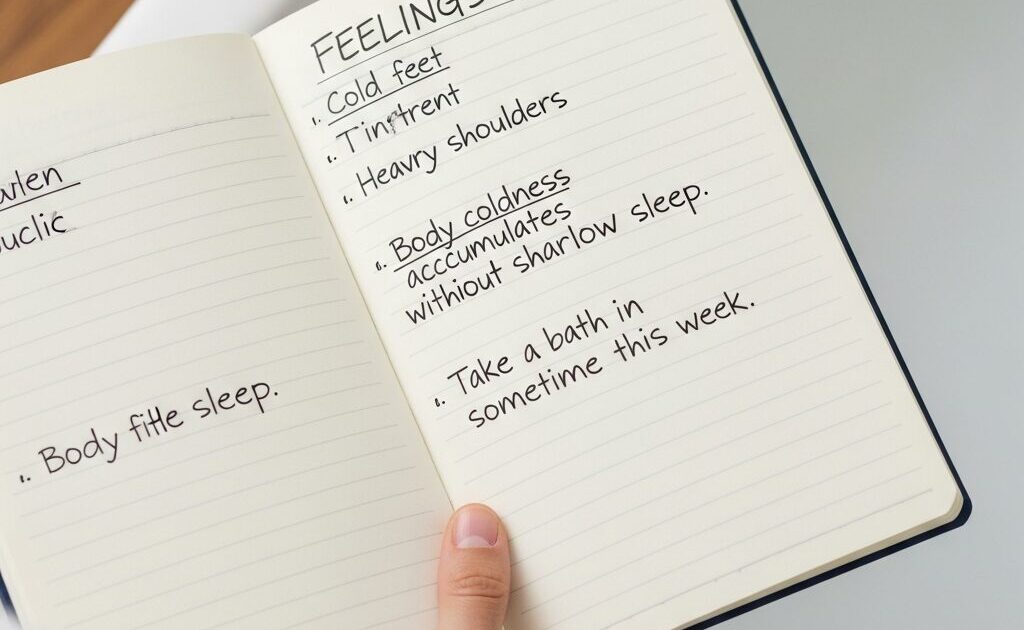 Body fitle sleep.
FEELINGS
Cold feet
Heavry shoulders
Body coldness
acccumulates
withiout sharlow sleep.
Take a bath in
sometime this week.